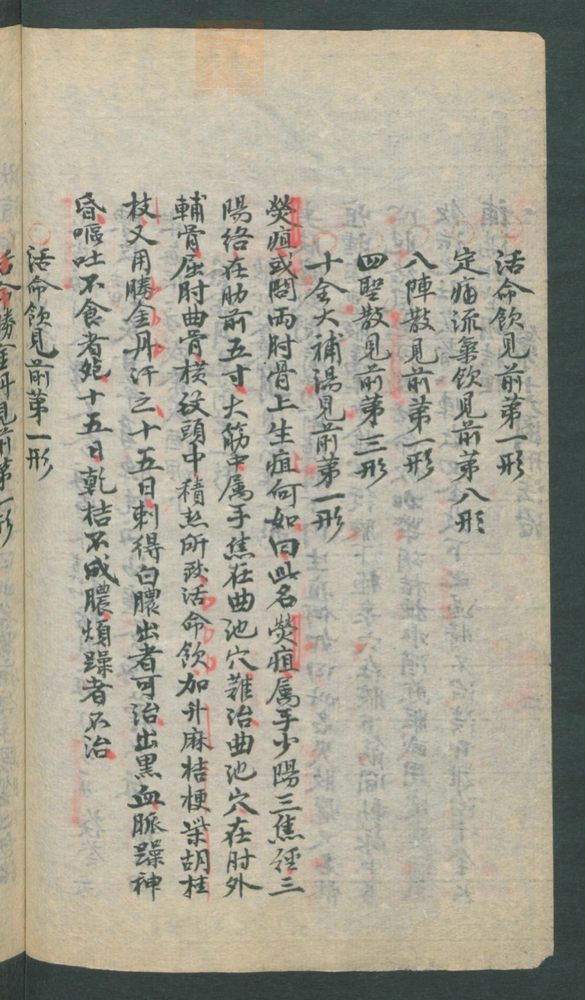 活命飲見前第一形
定痛流氣飲見前第八形
八陣散見前第一形
四聖散見前第三形
十全大補湯見前第一形
熒疽或問兩肘骨上生疽何如曰此名熒疽属手少陽三焦徑三
陽络在肋前五寸大筋中属手焦在曲池穴難治曲池穴在肘外
輔骨屈肘曲骨横紋頭中積热所致活命飲加升麻桔梗柴胡桂
枝又用勝金丹汗之十五日刺得白膿出者可治出黑血脈躁神
昏嘔吐不食者死十五日乾枯不成膿煩躁者不治
活命飲見前第一形
活命勝金丹見前第一形